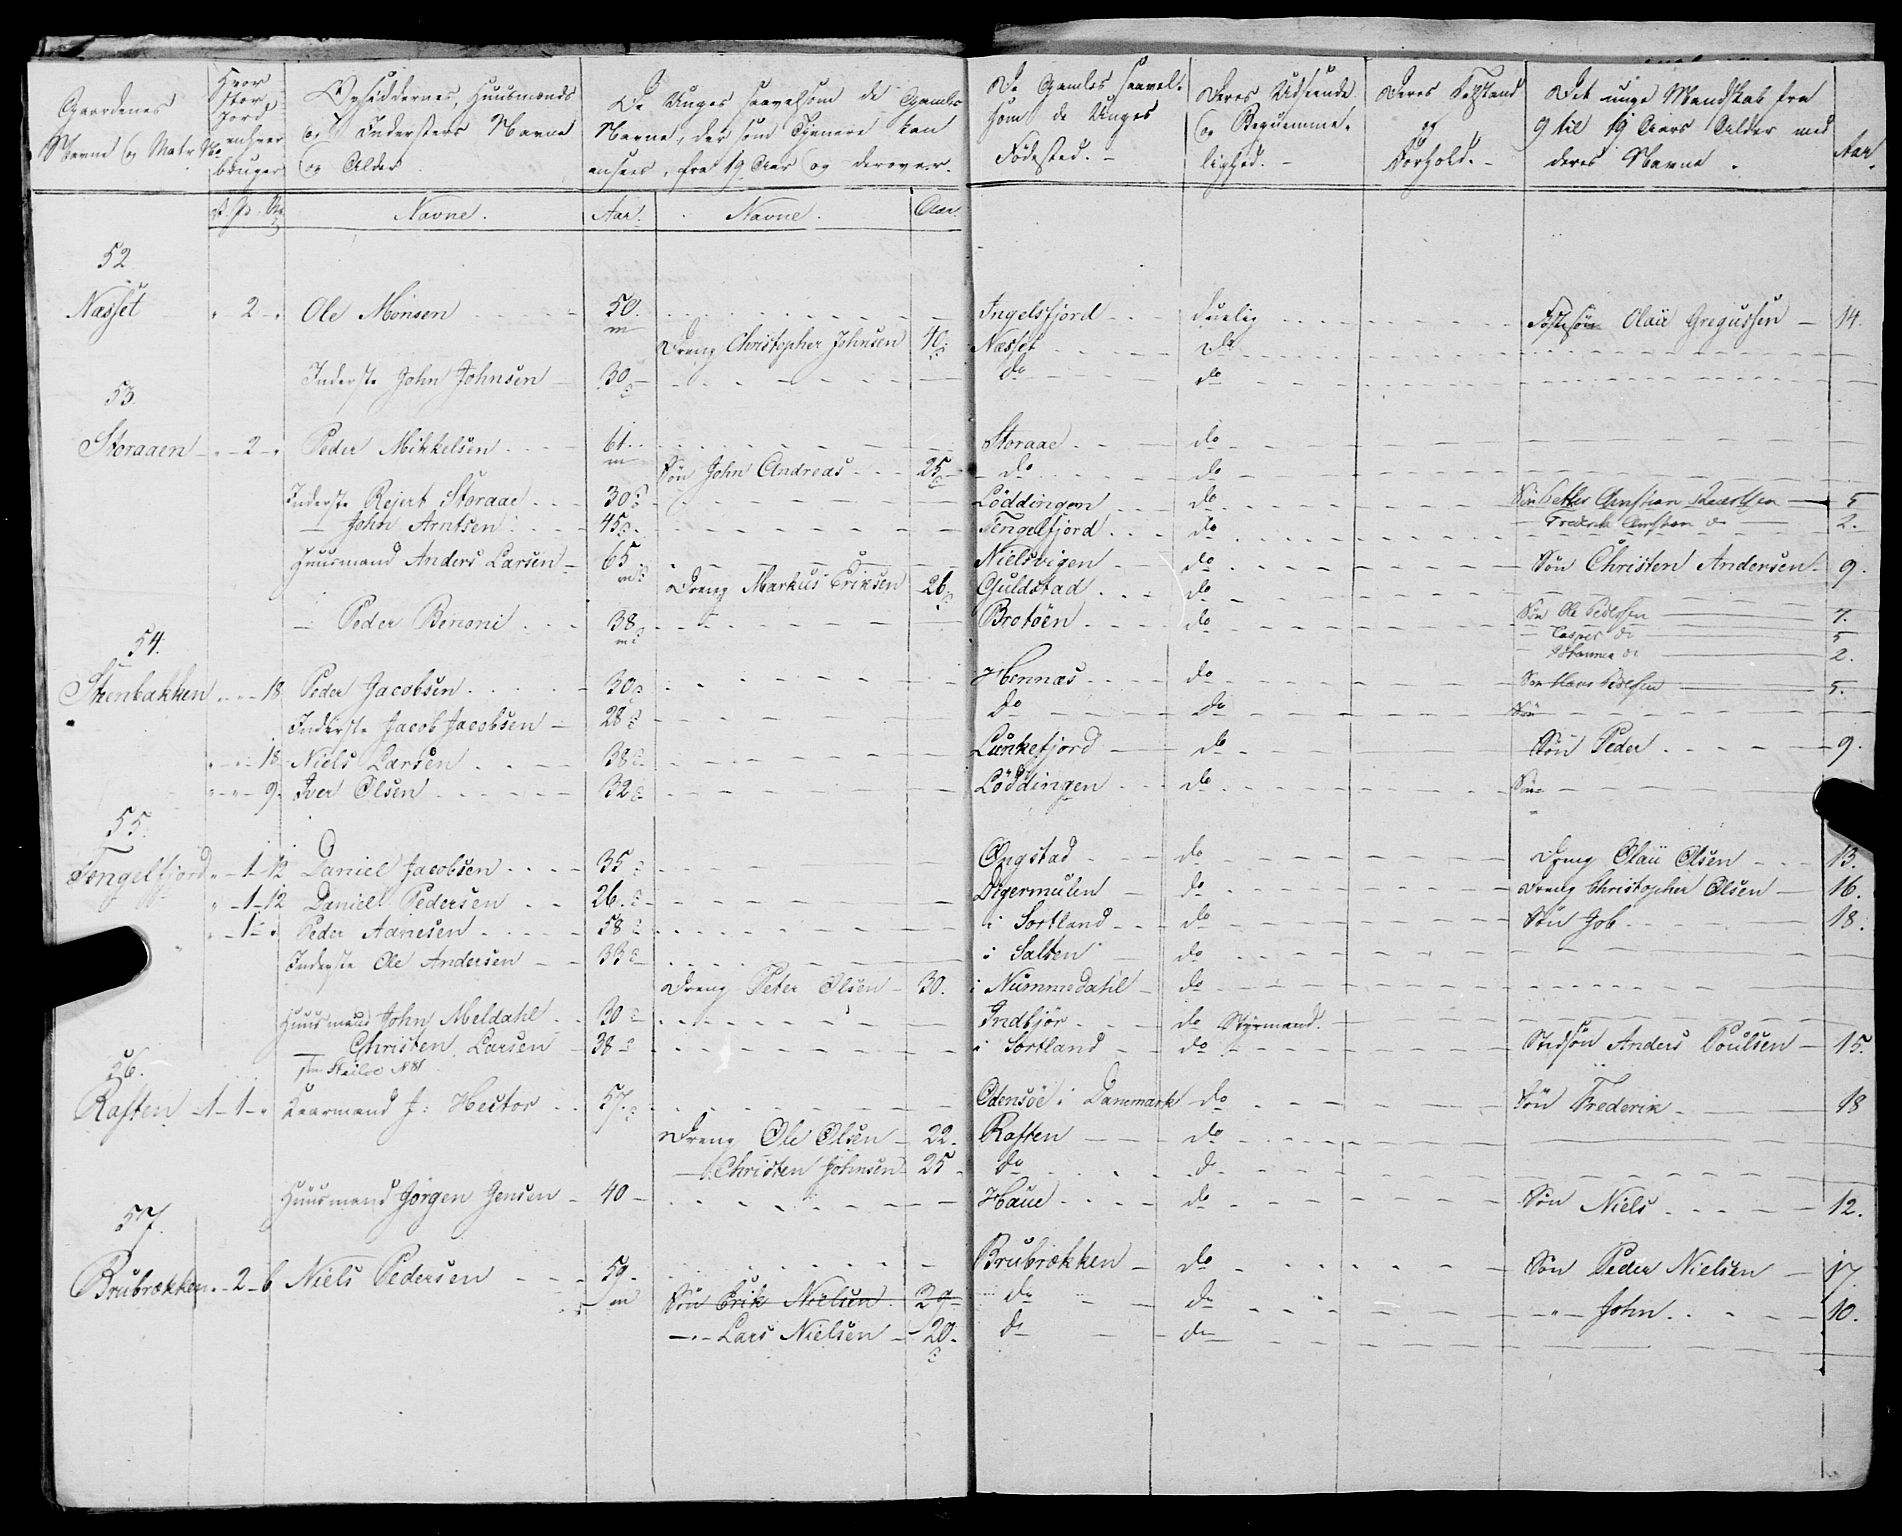 Gaardenes Navne og Matr No
Hvor stor Jord enhver bruger
Opsiddernes, Huusmænds og Indersters Navne og Alder
De Unges saavelsom de Gamles Navne, der som Tjenere kan ansees, fra 19 Aar og derover.
De Gamles saavelsom de Unges Fødested.
Deres Udseende og Beqvemmelighed.
Deres Tilstand og Forhold.
Det unge Mandskab fra 9 til 19 Aars Alder med deres Navne.
Aar.
Navne. Aar. Navne. Aar.
52
Næsset " 2 " Ole Monsen 50. m Ingelsfjord duelig Fostersøn Olaü Gregussen 14.
Dreng Christopher Johnsen 40. Næsset do
Inderste John Johnsen 30 do do
53.
Storaaen " 2 " Peder Mikkelsen 61. m Storaae do
Søn John Andreas 25 do do
Inderste Rejert Storaae 30 Löddingen do Søn 5
John Arntsen 45 Tengelfjord do 2.
Huusmand Anders Larsen 65 Nielsvigen do Søn Christen Andersen 9.
Dreng Markus Eriksen 26 Guldstad do
Peder Benoni 38 Brotöen do Søn Ole Pedersen 7.
Casper do 5
Johannes do 2.
54.
Steenbakken " " 18 Peder Jacobsen 30 Hennæs do Søn Hans Pedersen 5.
Inderste Jacob Jacobsen 28 do do Søn
" " 18 Niels Larsen 38 Lunkefjord do Søn Peder 9.
" " 9. Iver Olsen 32 Löddingen do Søn
55.
Tengelfjord " 1 12 Daniel Jacobsen 35 Øngstad do Dreng Olaü Olsen 13.
" 1 12 Daniel Pedersen 26. Digermulen do Dreng Christopher Olsen 16.
" 1 " Peder Aanesen 58 i Sortland do Søn Job 18.
Inderste Ole Andersen 33 i Salten do
Dreng Peter Olsen 30. i Nummedahl do
Huusmand John Meldahl 30 Indbjör do Styrmand.
Christen Larsen 38 i Sortland do Stedsøn Anders Poulsen 15.
56.
Raften 1 1 " Kaarmand J: Hector 57. Odensöe i Danmark do Søn Frederik 18
Dreng Ole Olsen 22. Raften do
Christen Johnsen 25 do do
Huusmand Jørgen Jensen 40 Haue do Søn Niels 12.
57.
Brubrækken " 2 6 Niels Pedersen 59. m Brubrækken do Søn Peder Nielsen 17.
Søn Erik Nielsen 29 do do " John 10.
" Lars Nielsen 20. do do